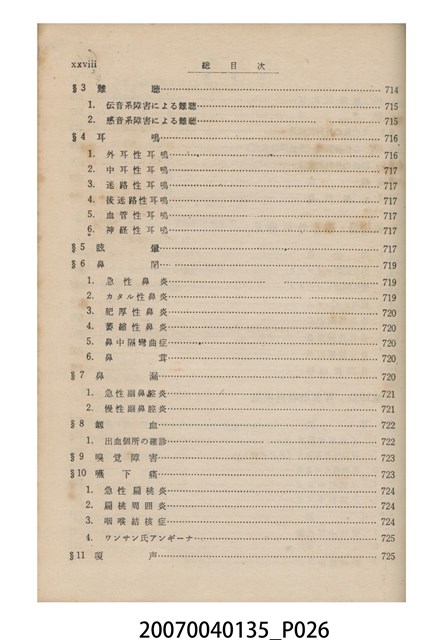 xxviii 総目次
§3 難聴 714
1. 伝音系障害による難聴 715
2. 感音系障害による難聴 715
§4 耳鳴 716
1. 外耳性耳鳴 716
2. 中耳性耳鳴 717
3. 迷路性耳鳴 717
4. 後迷路性耳鳴 717
5. 血管性耳鳴 717
6. 神経性耳鳴 717
§5 眩暈 717
§6 鼻閉 719
1. 急性鼻炎 719
2. カタル性鼻炎 719
3. 肥厚性鼻炎 720
4. 萎縮性鼻炎 720
5. 鼻中隔彎曲症 720
6. 鼻茸 720
§7 鼻漏 720
1. 急性副鼻腔炎 721
2. 慢性副鼻腔炎 721
§8 衂血 722
1. 出血個所の確診 722
§9 嗅覚障害 723
§10 嚥下痛 723
1. 急性扁桃炎 724
2. 扁桃周囲炎 724
3. 咽喉結核症 724
4. ワンサン氏アンギーナ 725
§11 嗄声 725
20070040135_P026